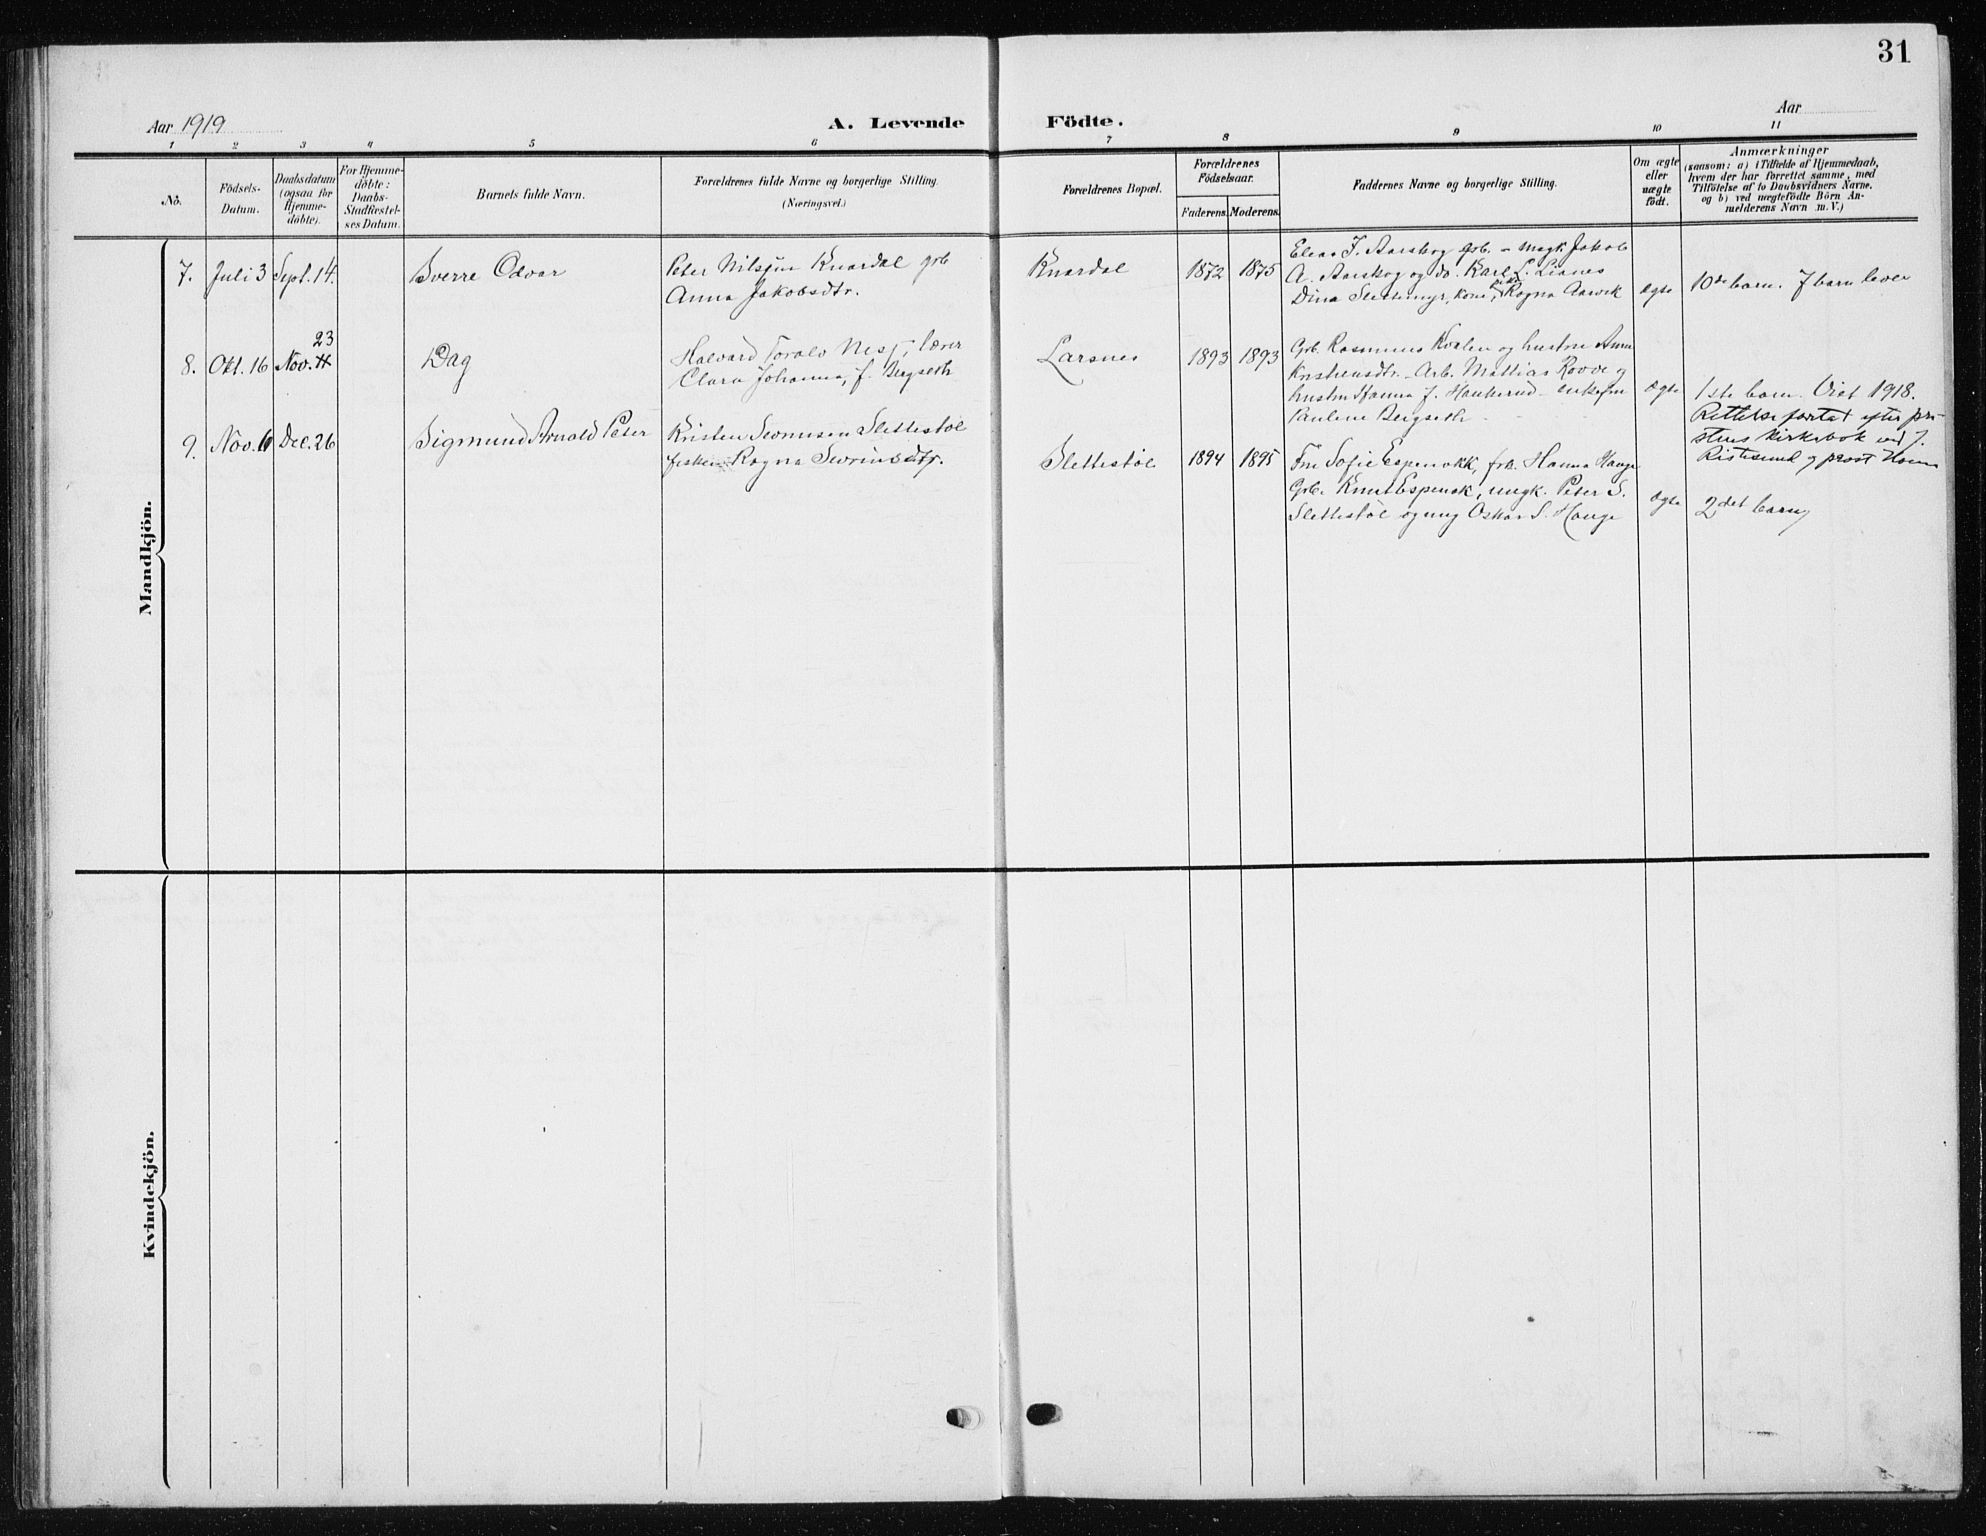 31
Aar 1919
A. Levende Födte.
Aar
1 2 3 4 5 6 7 8 9 10 11
No.
Födsels-Datum.
Daabsdatum (ogsaa for Hjemme-döbte).
For Hjemme-döbte: Daabs-Stadfæstel-ses Datum.
Barnets fulde Navn.
Forældrenes fulde Navne og borgerlige Stilling.
(Næringsvei.)
Forældrenes Bopæl.
Forældrenes Födselsaar.
Faderens. Moderens.
Faddernes Navne og borgerlige Stilling.
Om ægte eller uægte födt.
Anmærkninger
(saasom: a) i Tilfælde af Hjemmedaab,
hvem der har forrettet samme, med
Tilföielse af to Daabsvidners Navne.
og b) ved uægtefödte Börn An-
melderens Navn m. V.)
Mandkjön.
7. Juli 3 Sept. 14. Sverre Odvar
Peter Nilsen Knardal grb
Anna Jakobsdtr.
Knardal 1872 1875
Elias J. Aarskog grb. - ungk Jakob
A. Aarskog og do. Karl L. Lianes
Dina Slettemyr, kone, pike Ragna Aarvik
ægte
10de barn. 7 barn lever
8. Okt. 16 Nov. 23 Dag
Halvard Toralv Nesje, lærer
Clara Johanna, f. Bergseth
Larsnes 1893 1893
Grb. Rasmus Kvalen og hustru Anna
Kristensdtr. - Arb. Mathias Rovde og
hustru Hanna f. Haukerud - enkefru
Pauline Bergseth -
ægte
1ste barn. Viet 1918.
Rettelse foretat efter pre-
stens kirkebok ved J.
Ristesund og prost
9. Nov. 6 Dec. 26 Sigmund Arnold Peter
Kristen Sevrinsen Slettestøl
fisker Ragna Sevrinsdtr.
Slettestøl 1894 1895
Fru Sofie Espenakk, frk. Hanna Hauge
Grb. Knut Espenak, ungk. Peter S.
Slettestøl og ung Oskar S. Hauge
ægte
2det barn
Kvindekjön.